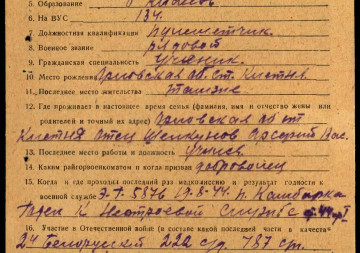 5. Образование 7 классов
6. На ВУС 134.
7. Должностная квалификация пулеметчик.
8. Военное звание рядовой
9. Гражданская специальность ученик.
10. Место рождения Орловская об. ст. Клетня
11. Последнее место жительства
12. Где проживает в настоящее время семья (фамилия, имя и отчество жены или
родителей и точный адрес) Орловская об ст
Клетня отец Арсений Вас.
13. Последнее место работы и должность
14. Каким райгорвоенкоматом и когда призван доброволец
15. Когда и где проходил последний раз медкомиссию и результат годности к
военной службе 19-8-44 п. Камбарка
Годен к Нестроевой службе
16. Участие в Отечественной войне (в составе какой последней части в качестве
2й Белорусский 222 сд. 787 сп.